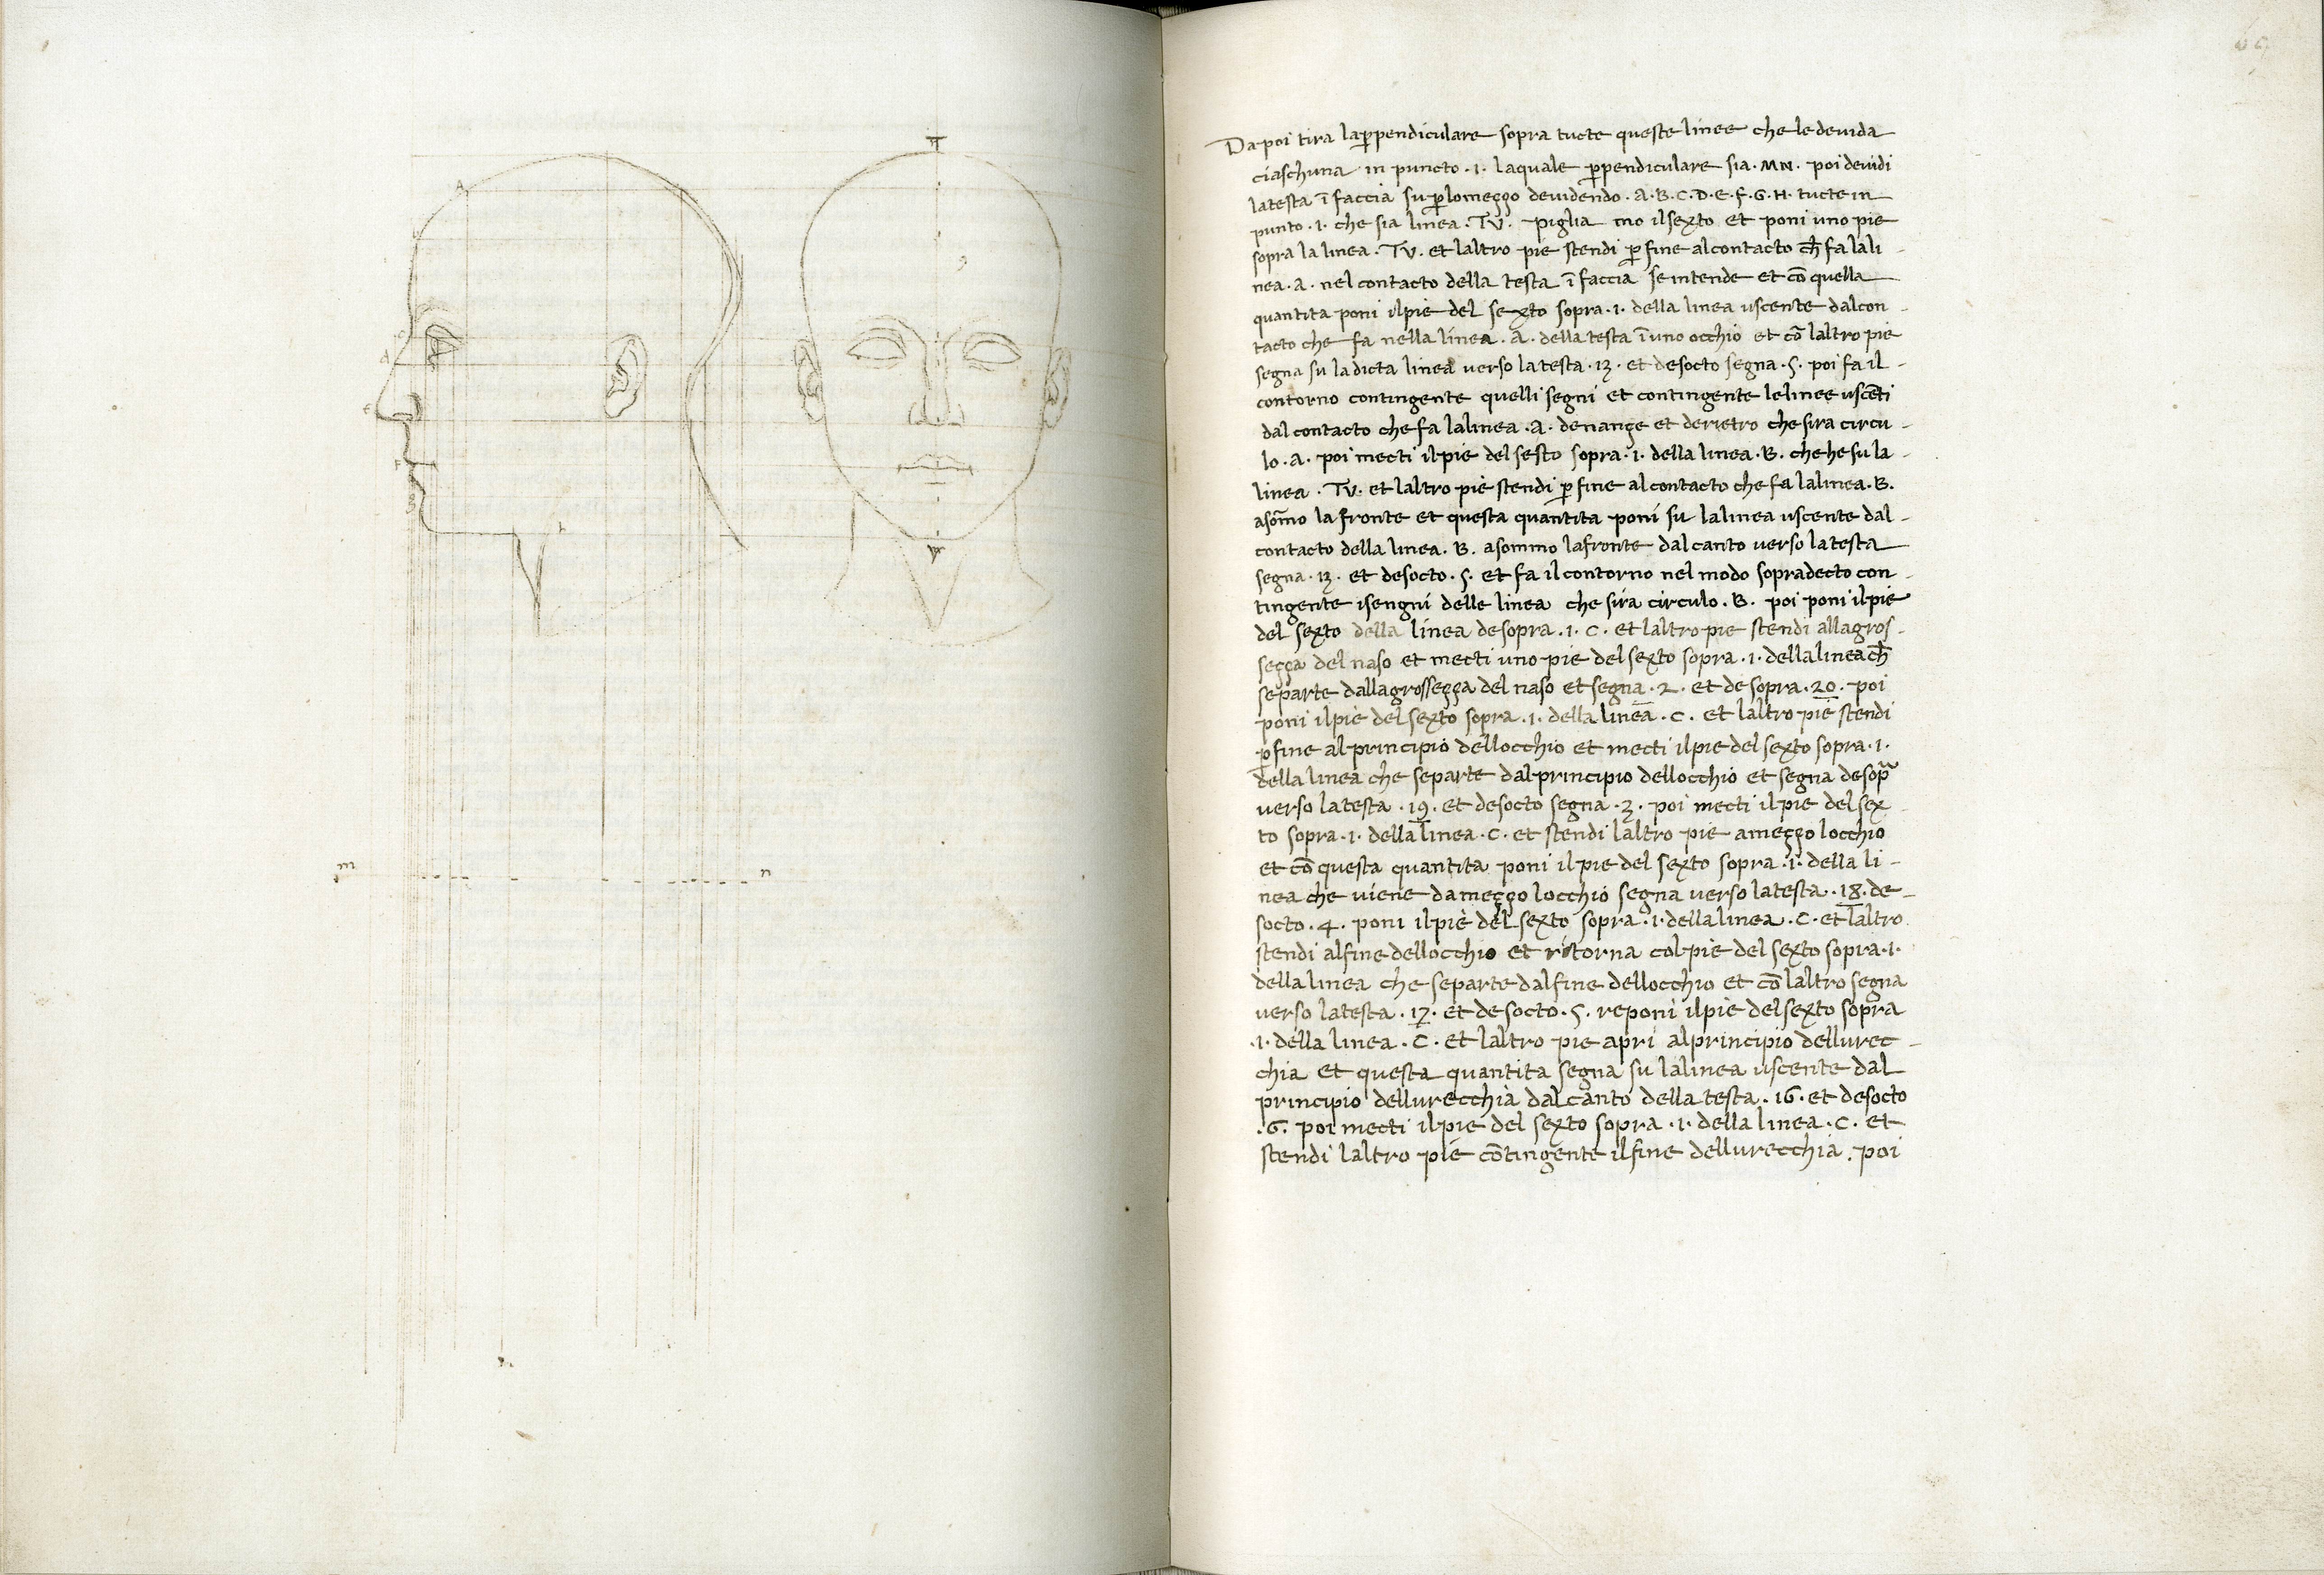 A
T
B
C
d
E
F
L
V
m
n
65
Da poi tira laꝑpendiculare sopra tucte queste linee che le devida
ciaschuna in puncto .I. laquale ꝑpendiculare sia .MN. poi devidi
latesta ī faccia su ꝑlomeçço devidendo .A.B.C.D.E.F.G.H. tucte in
punto .I. che sia linea .TV. Piglia mo ilsexto et poni uno pie
sopra la linea .TV. et laltro pie stendi ꝑ fine alcontacto ch̄ fa lali-
nea .A. nel contacto della testa ī faccia se intende et cō quella
quantita poni ilpie del sexto sopra .I. della linea uscente dalcon-
tacto che fa nella linea .A. della testa īuno occhio et cō laltro pie
segna su la dicta linea verso la testa .13. et desocto segna .5. poi fa il-
contorno contingente quelli segni et contingente lelinee uscēti
dal contacto che fa lalinea .A. denançe et derietro che sira circu-
lo .A. poi mecti ilpie del sesto sopra .I. della linea .B. che he su la-
linea .TV. et laltro pie stendi ꝑ fine al contacto che fa lalinea .B.
asōmo la fronte et questa quantita poni su lalinea uscente dal-
contacto della linea .B. asommo lafronte dal canto verso latesta
segna .13. et desocto .5. et fa il contorno nel modo sopradecto con-
tingente isengni delle linea che sira circulo .B. poi poni ilpie
del sexto della linea desopra .I. C. et laltro pie stendi allagros-
seçça del naso et mecti uno pie del sexto sopra .I. della linea ch̄
separte dallagrosseçça del naso et segna .2. et de sopra .20. poi
poni ilpie del sexto sopra .I. della linea .C. et laltro pie stendi
ꝑ fine al principio dellocchio et mecti ilpie del sexto sopra .I.
della linea che separte dal principio dellocchio et segna desopᵃ
verso latesta .19. et desocto segna .3. poi mecti ilpie del sex-
to sopra .I. della linea .C. et stendi laltro pie ameçço locchio
et cō questa quantita poni ilpie del sexto sopra .I. della li-
nea che viene dameçço locchio segna verso latesta .18. de-
socto .4. poni ilpie del sexto sopra .I. della linea .C. et laltro
stendi alfine dellocchio et ritorna colpie del sexto sopra .I.
della linea che separte dalfine dellocchio et cō laltro segna
verso latesta .17. et de socto .5. reponi ilpie del sexto sopra
.I. della linea .C. et laltro pie apri al principio dellurec-
chia et questa quantita segna su lalinea uscente dal
principio dellurecchia dal canto della testa .16. et desocto
.6. poi mecti ilpie del sexto sopra .I. della linea .C. et
stendi laltro pie cōtingente ilfine dellurecchia. poi